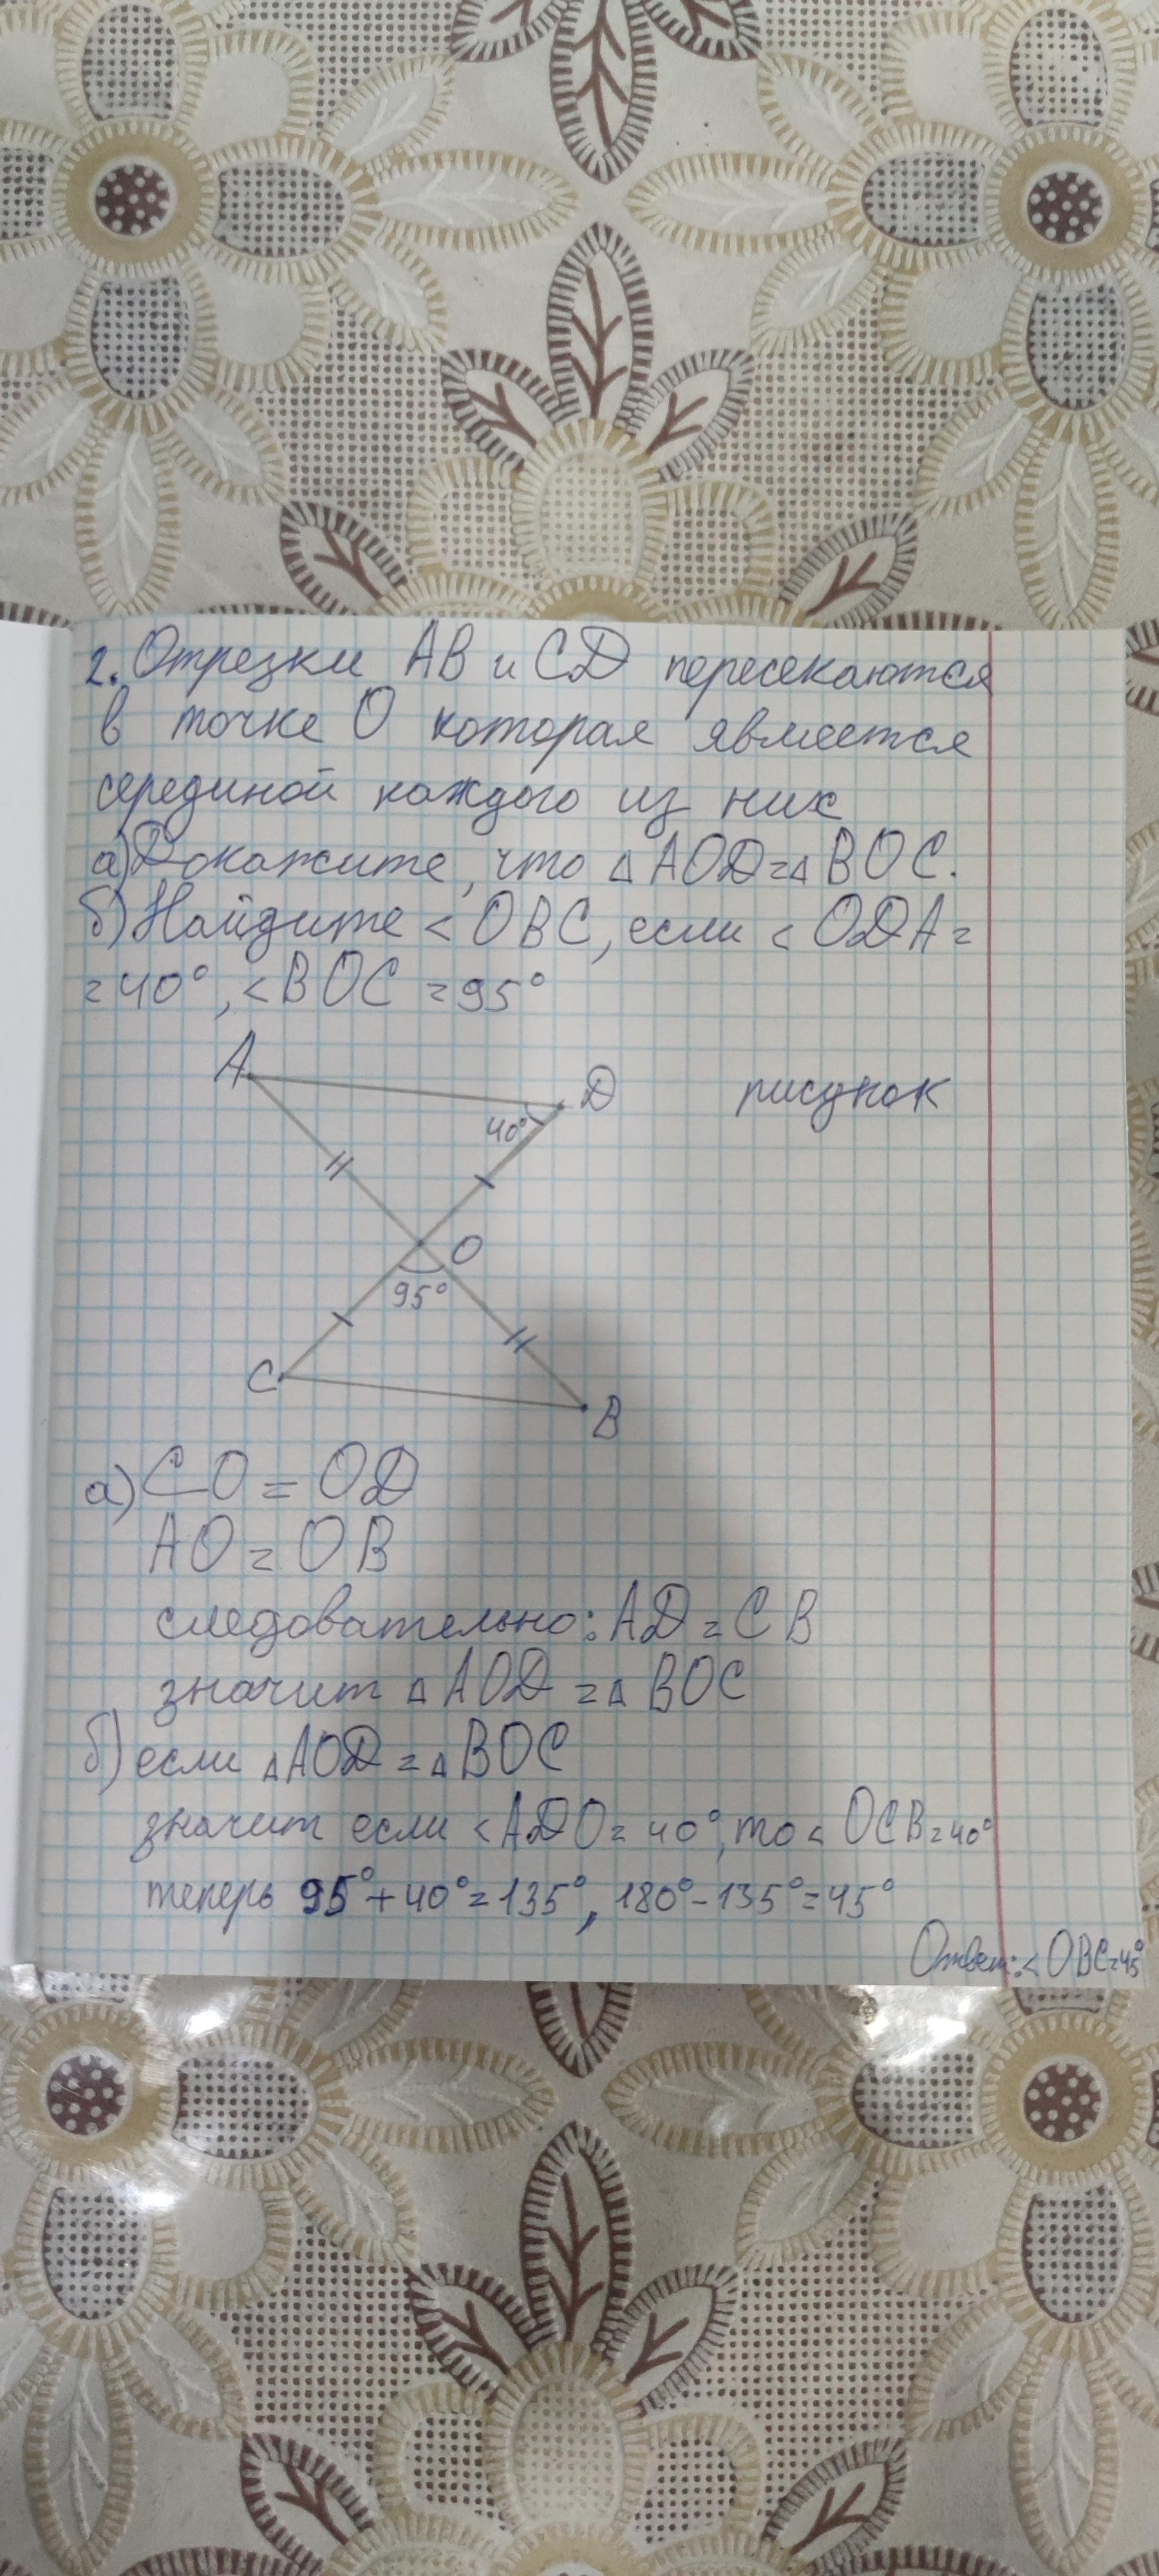 2. Отрезки AB и CD пересекаются
в точке O которая является
серединой каждого из них
а) Докажите, что △AOD=△BOC.
б) Найдите <OBC, если <ODA=
=40°, <BOC=95°
A
D
рисунок
40°
O
95°
C
B
а) CO = OD
AO = OB
следовательно: AD = CB
значит △AOD = △BOC
б) если △AOD = △BOC
значит если <ADO=40°, то <OCB=40°
теперь 95°+40°=135°, 180°-135°=45°
Ответ: <OBC=45°